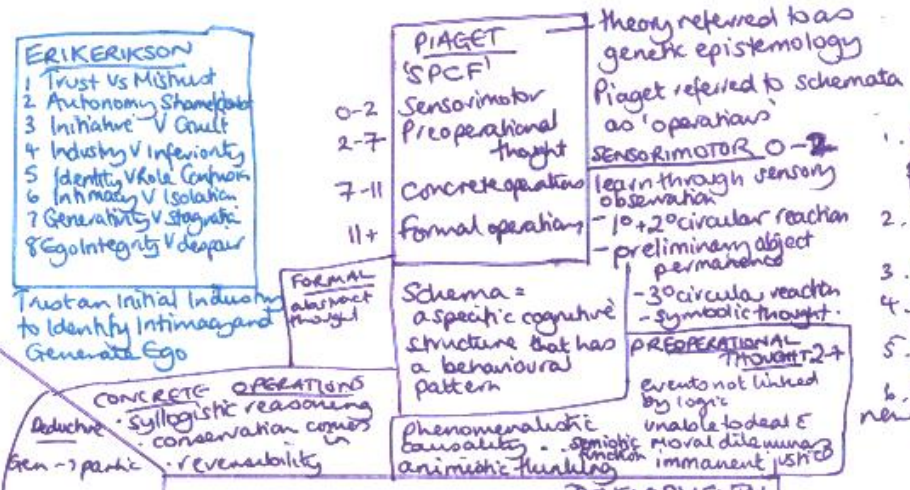 ERIKERIKSON
1 Trust Vs Mistrust
2 Autonomy Shame/doubt
3 Initiative V Guilt
4 Industry V Inferiority
5 Identity V Role Confusion
6 Intimacy V Isolation
7 Generativity V Stagnatic
8 Ego Integrity V despair
Trust an Initial Industry
to Identify Intimacy and
Generate Ego
PIAGET
'SPCF'
0-2 Sensorimotor
2-7 Preoperational
thought
7-11 Concrete operations
11+ Formal operations
theory referred to as
genetic epistemology
Piaget referred to schemata
as 'operations'
SENSORIMOTOR 0-2
learn through sensory
observation
- 1° + 2° circular reaction
- preliminary object
permanence
- 3° circular reaction
- symbolic thought.
1.
2.
3.
4.
5.
6.
new
FORMAL
abstract
thought
Schema =
a specific cognitive
structure that has
a behavioural
pattern
PREOPERATIONAL
THOUGHT 2-7
events not linked
by logic
unable to deal c̄
moral dilemmas
immanent justice
CONCRETE OPERATIONS
· syllogistic reasoning
conservation comes
· reversibility
Deductive
Gen -> partic
phenomenalistic
causality · semiotic
function
animistic thinking